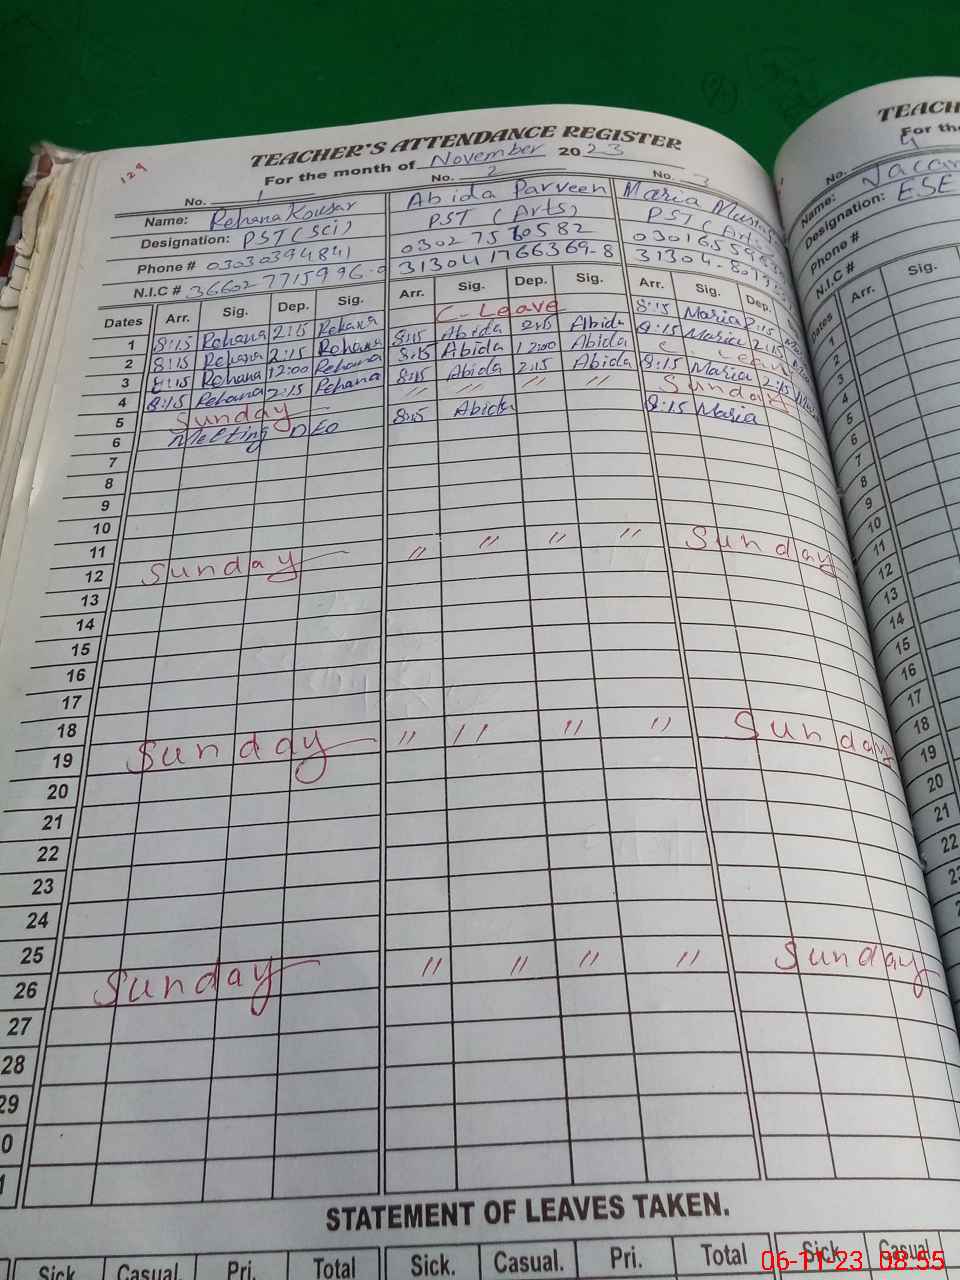 129
TEACHER'S ATTENDANCE REGISTER
For the month of November 2023
No. 1 No. 2 No. 3
Name: Rehana Kousar Abida Parveen Maria
Designation: PST (Sci) PST (Arts) PST (Arts
Phone # 03030394841 0302
N.I.C # 36602 7715996-0 31304 1766369-8 31304-
Dates Arr. Sig. Dep. Sig. Arr. Sig. Dep. Sig. Arr. Sig. Dep.
1 8:15 Rehana 2:15 Rehana C-Leave 8:15 Maria 2:15
2 8:15 Rehana 2:15 Rehana 8:15 Abida 2:15 Abida 8:15 Maria 2:15
3 8:15 Rehana 12:00 Rehana 8:15 Abida 12:00 Abida C-Leave
4 8:15 Rehana 2:15 Rehana 8:15 Abida 2:15 Abida 8:15 Maria 2:15
5 Sunday " " " " Sunday
6 Meeting DEO 8:15 Abida 8:15 Maria
7
8
9
10
11
12 Sunday " " " " Sunday
13
14
15
16
17
18
19 Sunday " " " " Sunday
20
21
22
23
24
25
26 Sunday " " " " Sunday
27
28
29
0
1
STATEMENT OF LEAVES TAKEN.
Sick. Casual. Pri. Total Sick. Casual. Pri. Total Sick. Casual.
TEACH
For the
No. 4
Name:
Designation: ESE
Phone #
N.I.C #
Dates Arr. Sig.
1
2
3
4
5
6
7
8
9
10
11
12
13
14
15
16
17
18
19
20
21
22
06-11-23 08:55